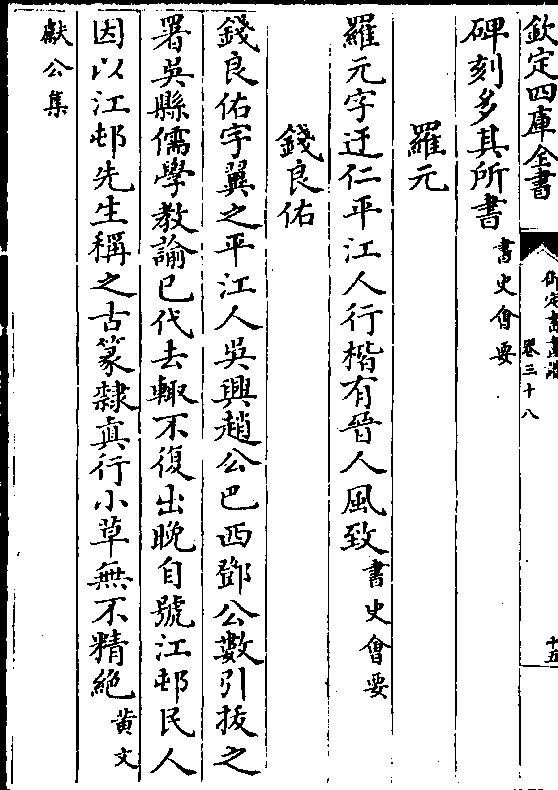 欽定四庫全書
御定書畫譜
卷三十八
十五
碑刻多其所書書史會要
羅元
羅元字迂仁平江人行楷有晉人風致書史會要
錢良佑
錢良佑字翼之平江人吳興趙公巴西鄧公數引拔之
署吳縣儒學教諭已代去輙不復出晚自號江邨民人
因以江邨先生稱之古篆隸真行小草無不精絕黃文
獻公集